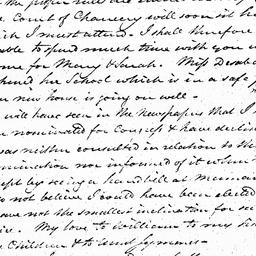 the
Court of Chancery will soon sit he
ich I must attend. I shall therefore
able to spend much time with you w
ome for Mary & Sarah. Miss
School which is in a safe
new house is going on well—
will have seen in the Newspapers that I
nominated for Congress & have declin
was neither consulted in relation to the
omination nor informed of it when
ept by seeing a handbill at
o not believe I could have been elected
have not the smallest inclination for
ice. My love to William to my
e Children & to